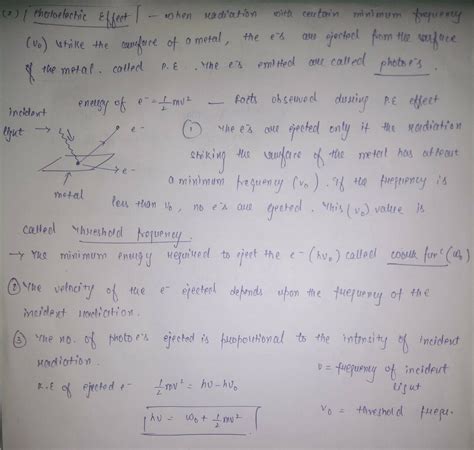 (x) | Photoelectric Effect | - when radiation with certain minimum frequency
(ν₀) strike the surface of a metal, the e⁻s are ejected from the surface
of the metal. called P.E. The e⁻s emitted are called photo e⁻s.
energy of e⁻ = ½mv² - Facts observed during P.E effect
incident
light → e⁻
e⁻
metal
① The e⁻s are ejected only if the radiation
striking the surface of the metal has atleast
a minimum frequency (ν₀). If the frequency is
less than ν₀, no e⁻s are ejected. This (ν₀) value is
called Threshold frequency.
→ The minimum energy required to eject the e⁻ (hν₀) called work funᶜ (W₀)
② The velocity of the e⁻ ejected depends upon the frequency of the
incident radiation.
③ The no. of photo e⁻s ejected is proportional to the intensity of incident
radiation.
K.E of ejected e⁻ ½mv² = hν - hν₀
hν = W₀ + ½mv²
ν = frequency of incident
light
ν₀ = threshold frequ.